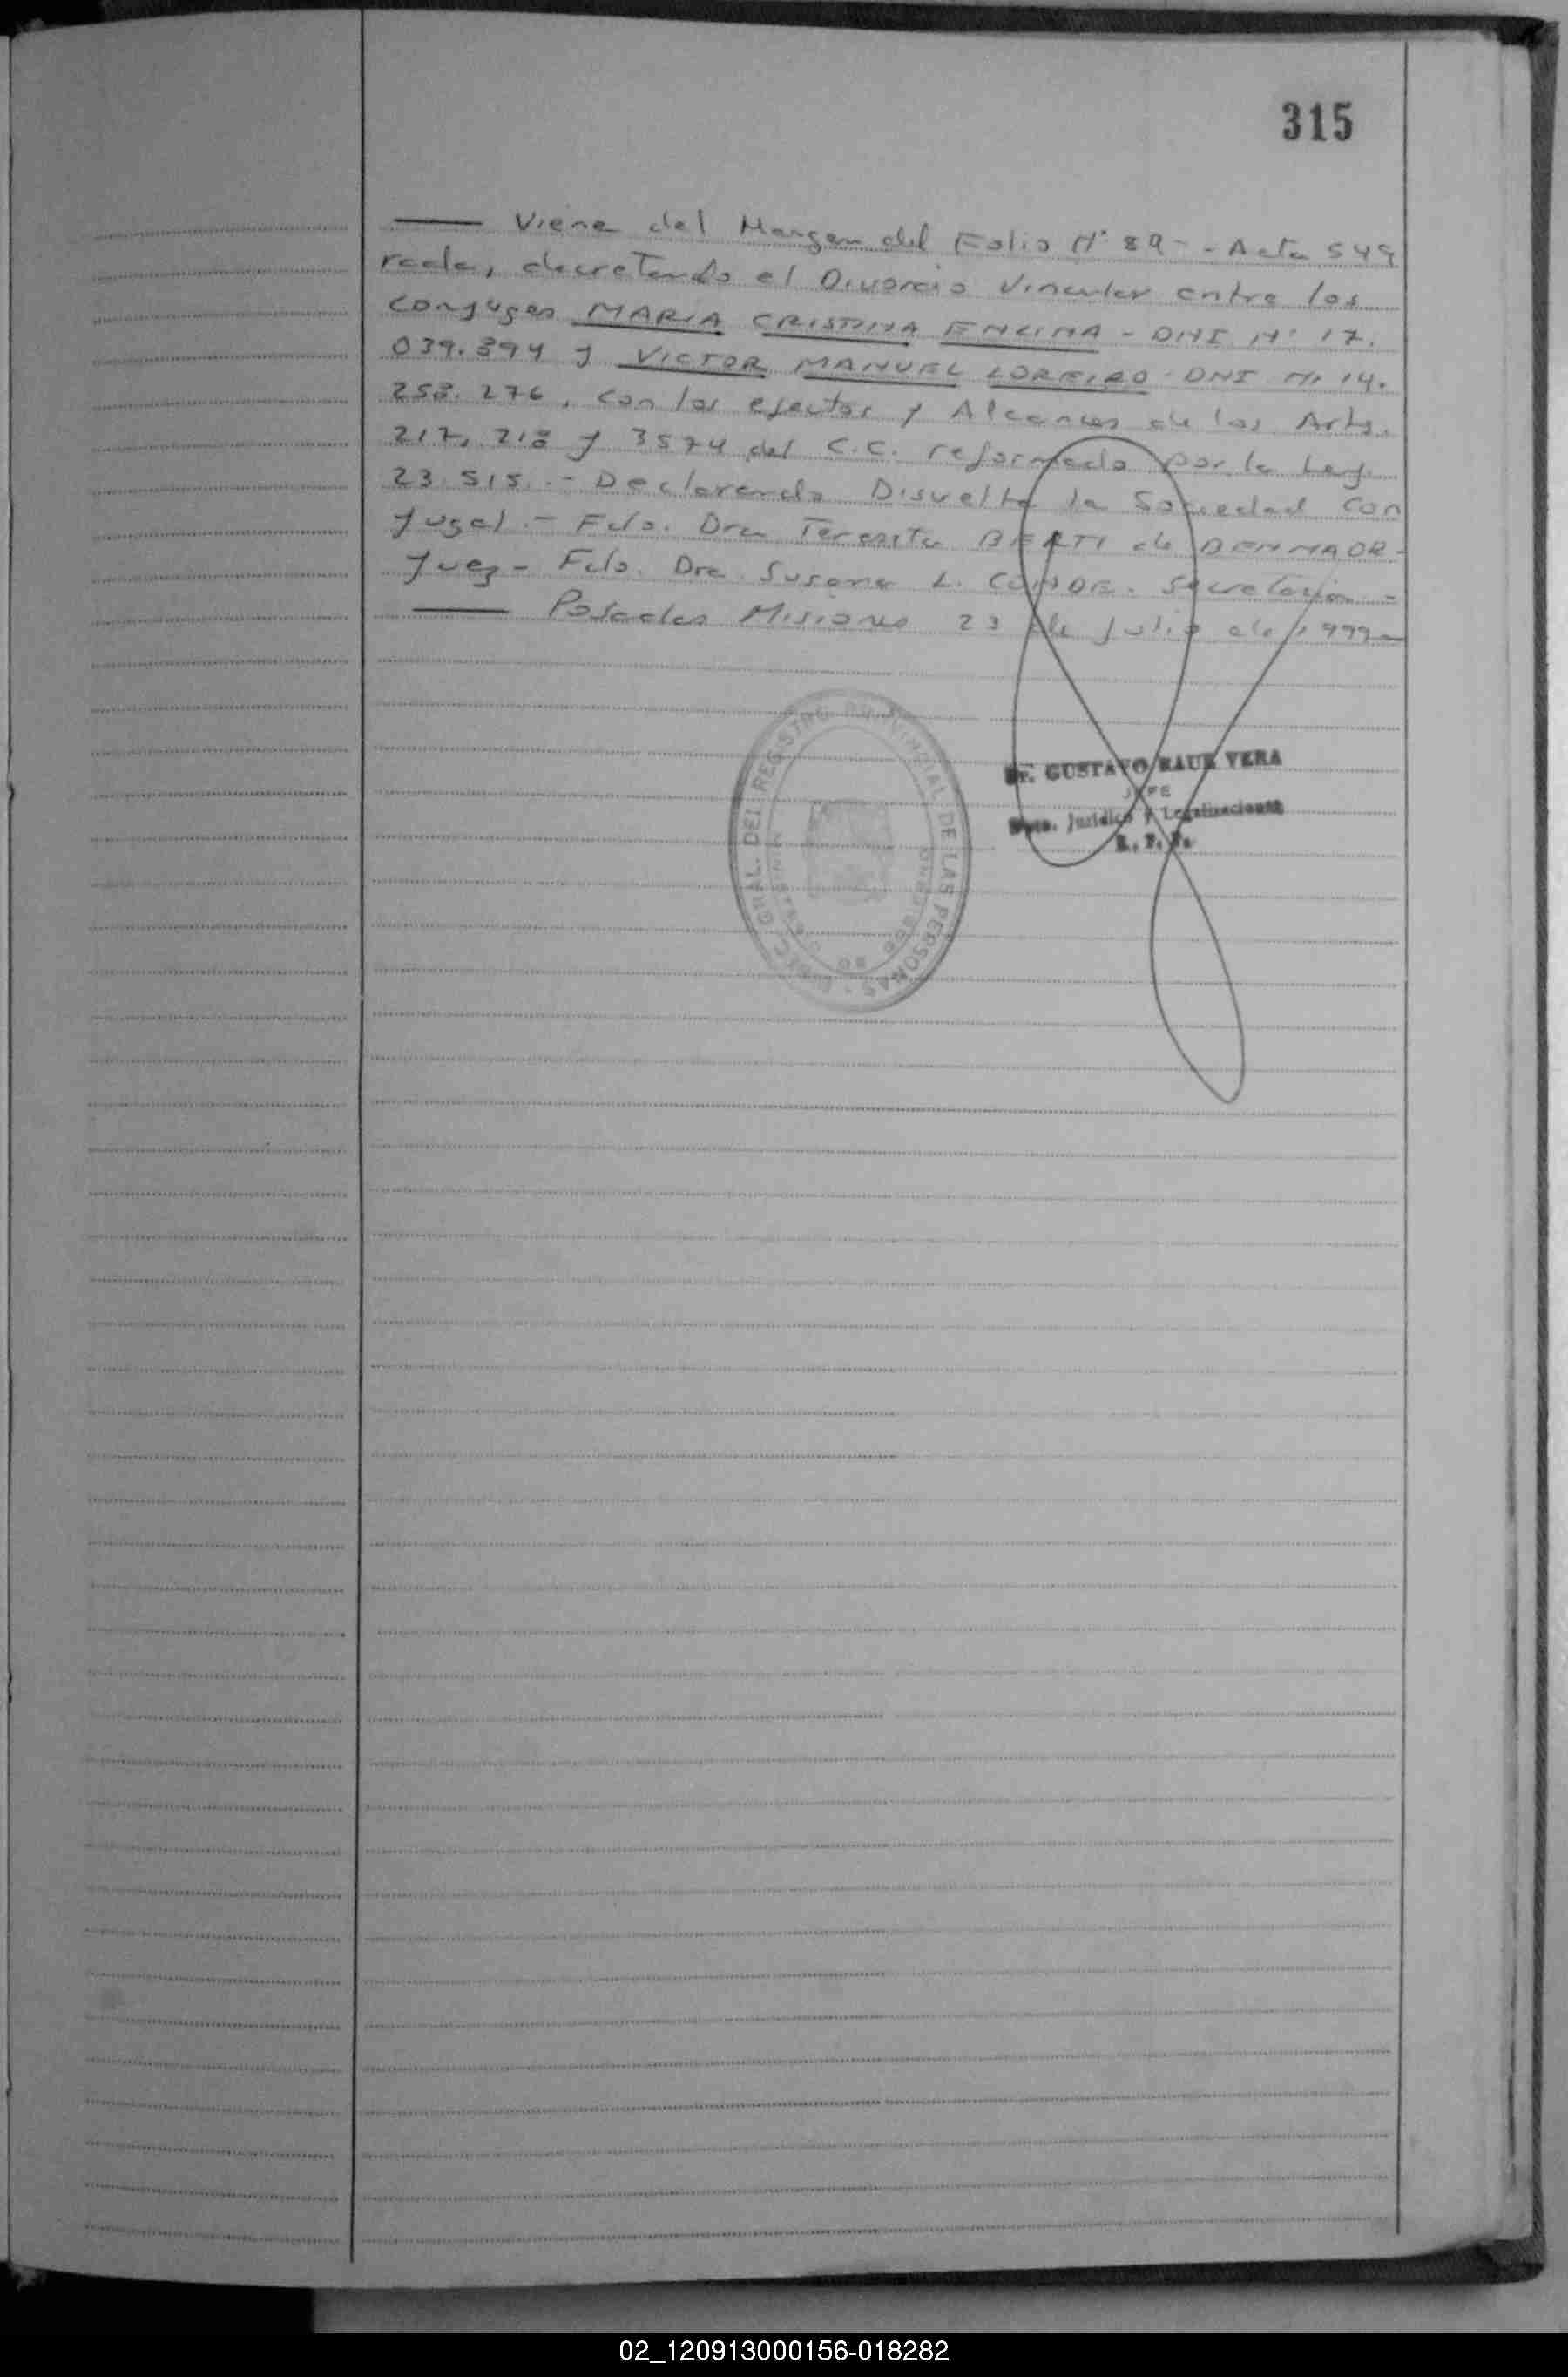 315
Viene del Margen del Folio Nº 89 - - Acta 549
rada, decretando el Divorcio Vincular entre los
conyuges MARIA CRISTINA ENCINA - DNI. Nº 17.
039.394 y VICTOR MANUEL LOREIRO - DNI Nº 14.
258.276, con los efectos y Alcances de los Arts.
217, 218 y 3574 del C.C. reformado por la Ley.
23.515.- Declarando Disuelta la Sociedad Con
yugal.- Fdo. Dra Teresita BERTI de
Juez - Fdo. Dra. Susana L. CONDE. Secretaria -
Posadas Misiones 23 de Julio de 1999
REGISTRO PROVINCIAL DE LAS PERSONAS
Dr. GUSTAVO RAUL VERA
JEFE
Dpto. Jurídico y Legalizaciones
R. P. P.
02_120913000156-018282